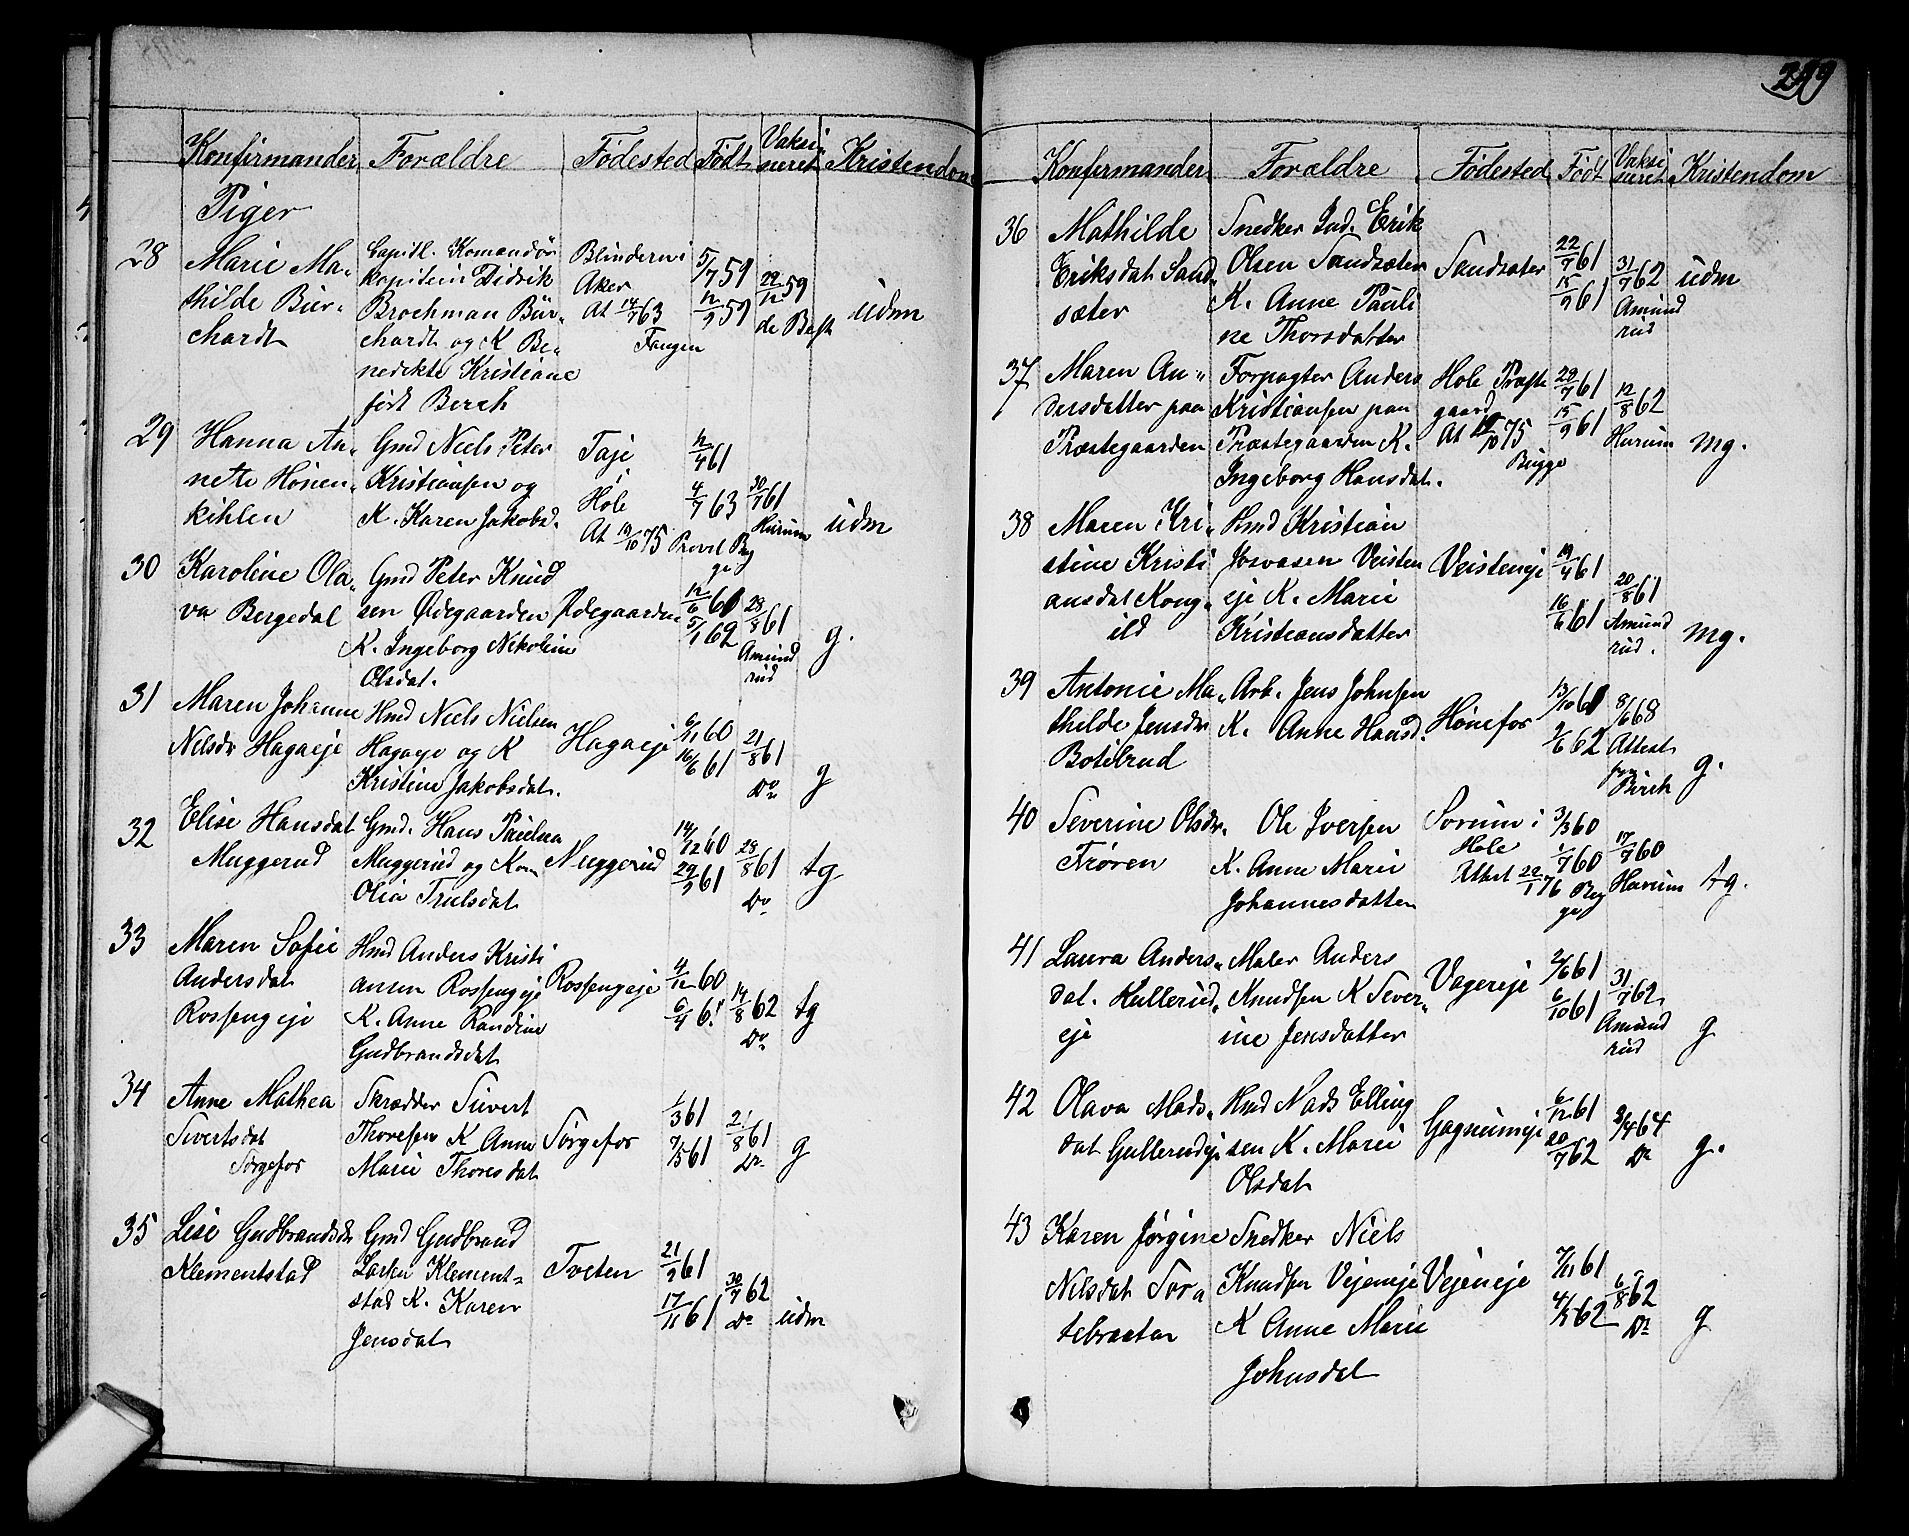 299
Konfirmander Forældre Fødested Født Vaksineret Kristendom
Piger
28 Marie Mathilde Burchardt
Capitl. Komandør
kapitein Didrik
Brochman Bur-
chardt og K Be-
nedikte Kristiane
født Berch
Blindern i
Aker
At 14/7 63
Fangen
5/7 59
12/9 59
22/12 59
de Besh
udm
29 Hanna An-
nette Hønen-
kihlen
Gmd Niels Peter
Kristiansen og
K. Karen Jakobsd.
Taje
Hole
At 19/10 75 Provst Bugge
12/4 61
4/7 63
30/7 61
Hurum
udm
30 Karoline Ola-
va Bergedal
Gmd Peter Knud
sen Ødegaarden
K. Ingeborg Nikoline
Olsdat.
Ødegaarden
12/6 60
5/1 62
28/8 61
Amund
rud
g.
31 Maren Johanne
Nelsdr Hagaeje
Hmd Niels Nielsen
Hagaeje og K
Kristine Jakobsdat.
Hagaeje
6/11 60
16/6 61
21/8 61
Do
g
32 Elise Hansdat
Muggerud
Gmd. Hans Paulsen
Muggerud og Kone
Olia Trulsdat
Muggerud
14/12 60
29/9 61
28/8 61
Do
tg
33 Maren Sofie
Andersdat
Rossengeje
Hmd Anders Kristi
ansen Rossengeje
K. Anne Randine
Gudbrandsdat
Rossengeje
4/12 60
6/4 61
14/8 62
Do
tg
34 Anne Mathea
Sivertsdat
Sørgefos
Skrædder Sivert
Thoresen K Anne
Marie Thoresdat
Sørgefos
1/3 61
7/5 61
21/8 61
Do
g
35 Lisе Gudbrandsdr
Klementstad
Gmd Gudbrand
Larsen Klement-
stad K. Karen
Jensdat
Tveten
21/9 61
17/11 61
30/7 62
Do
udm
Konfirmander Forældre Fødested Født Vaksineret Kristendom
36 Mathilde
Eriksdat Sand
sæter
Snedker Ind. Erik
Olsen Sandsæter
K. Anne Pauli
ne Thorsdatter
Sandsæter
22/7 61
15/9 61
31/7 62
Amund
rud
udm
37 Maren An-
dersdatter paa
Præstegaarden
Forpagter Anders
Kristiansen paa
Præstegaarden K.
Ingeborg Hansdat.
Hole Præste
gaard
At 19/10 75
Bugge
29/7 61
15/9 61
12/8 62
Hurum
mg.
38 Maren Kri-
stine Kristi
ansdat Kong-
ild
Hmd Kristian
Josvasen Veisten
eje K. Marie
Kristiansdatter
Veisteneje
19/4 61
16/6 61
20/8 61
Amund
rud.
mg.
39 Antonie Ma-
thilde Jensdr
Botilrud
Arb. Jens Johnsen
K. Anne Hansd.
Hønefos
13/10 61
2/6 62
8/6 68
Attest
fra
Birch
g.
40 Severine Olsdr.
Trøren
Ole Iversen
K. Anne Marie
Johannesdatter
Sørum i
Hole
Attest 22/1 76 Bugge
3/3 60
1/7 60
17/7 60
Hurum
tg.
41 Laura Anders-
dat. Hullerud-
eje
Maler Anders
Knudsen K Sever-
ine Jensdatter
Vagereje
2/6 61
6/10 61
31/7 62
Amund
rud
g
42 Olava Mads-
dat Gullerudeje
Hmd Mads Elling
sen K. Marie
Olsdat
Gagnumeje
6/12 61
20/7 62
3/4 64
Do
g.
43 Karen Jørgine
Nelsdat Tora
tebraaten
Snedker Niels
Knudsen Vejeneje
K Anne Marie
Johnsdat
Vejeneje
7/11 61
4/5 62
6/8 62
Do
g